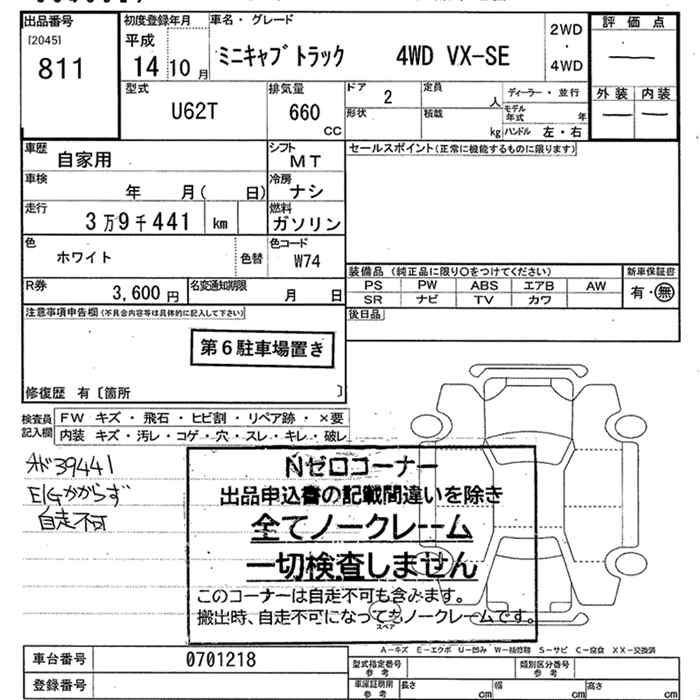 出品番号
[2045]
811
初度登録年月
平成
14 10 月
車名・グレード
ミニキャブトラック 4WD VX-SE
2WD
・
4WD
評価点
外装 内装
型式
U62T
排気量
660
CC
ドア 2
形状
定員 人
積載 kg
ディーラー・並行
モデル年式 年
ハンドル 左・右
車歴 自家用
シフト MT
車検 年 月( 日)
冷房 ナシ
走行 3万9千441 km
燃料 ガソリン
色 ホワイト 色替
色コード W74
R券 3,600 円
名変通知期限 月 日
セールスポイント(正常に機能するものに限ります)
装備品 (純正品に限り〇をつけてください)
新車保証書
PS PW ABS エアB AW
SR ナビ TV カワ
有・無
後日品
注意事項申告欄 (不具合内容等は具体的に記入して下さい)
第6駐車場置き
修復歴 有〔箇所 〕
検査員記入欄
FW キズ・飛石・ヒビ割・リペア跡・×要
内装 キズ・汚レ・コゲ・穴・スレ・キレ・破レ
39441
E/Gかからず
自走不可
Nゼロコーナー
出品申込書の記載間違いを除き
全てノークレーム
一切検査しません
このコーナーは自走不可も含みます。
搬出時、自走不可になってもノークレームです。
スペア
A-キズ E-エクボ U-凹み W-補修跡 S-サビ C-腐食 XX-交換済
車台番号 0701218
登録番号
型式指定番号 参考
類別区分番号 参考
車庫証明用 参考
長さ cm 幅 cm 高さ cm